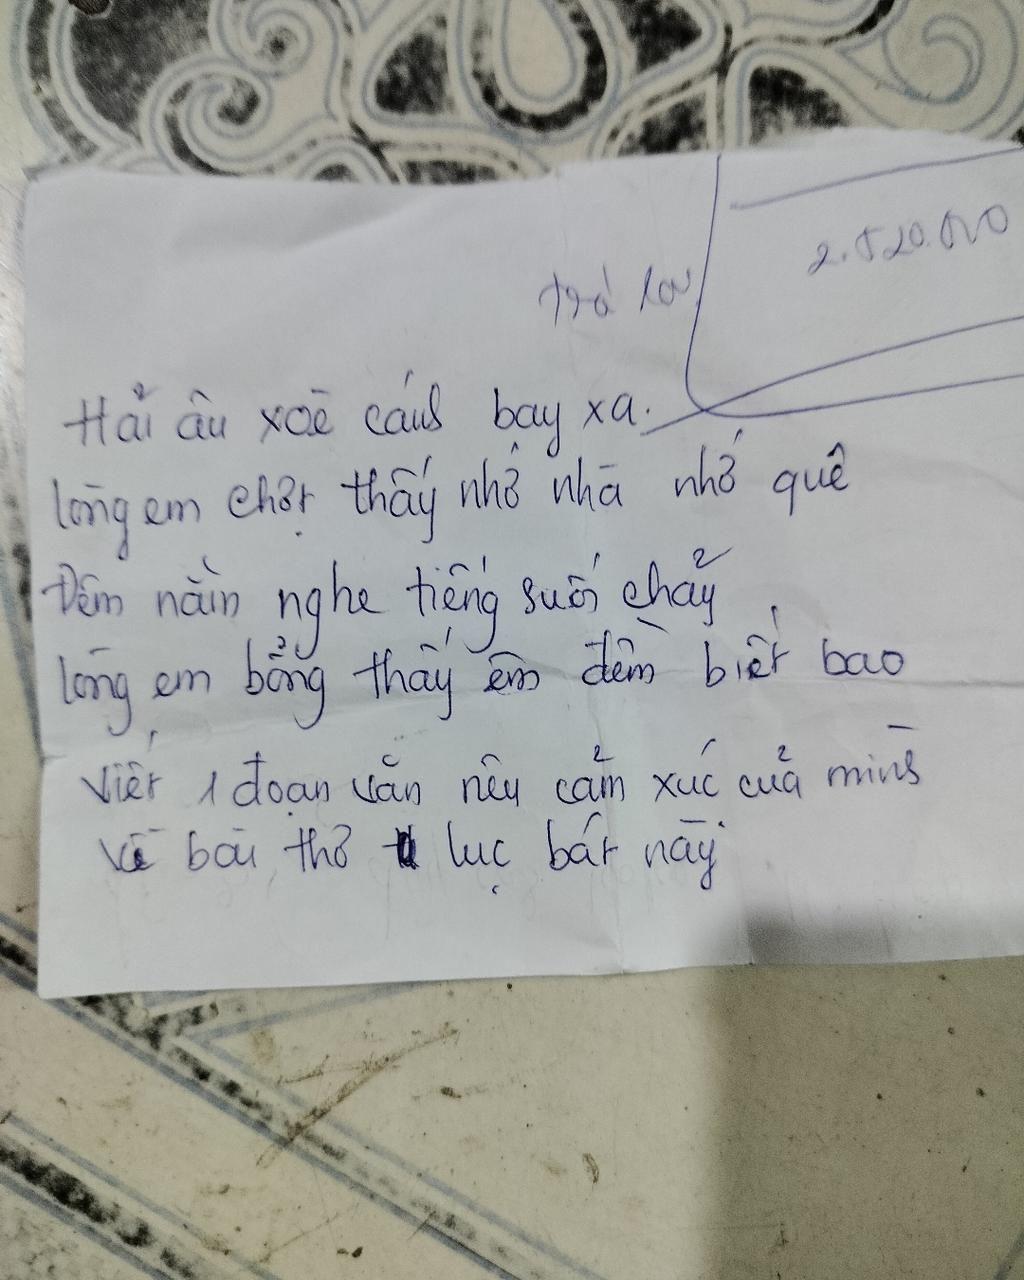 2.520.000
trả lại
Hải âu xoè cánh bay xa.
lòng em chợt thấy nhớ nhà nhớ quê
Đêm nằm nghe tiếng suối chảy
lòng em bỗng thấy êm đềm biết bao
Viết 1 đoạn văn nêu cảm xúc của mình
về bài thơ lục bát này